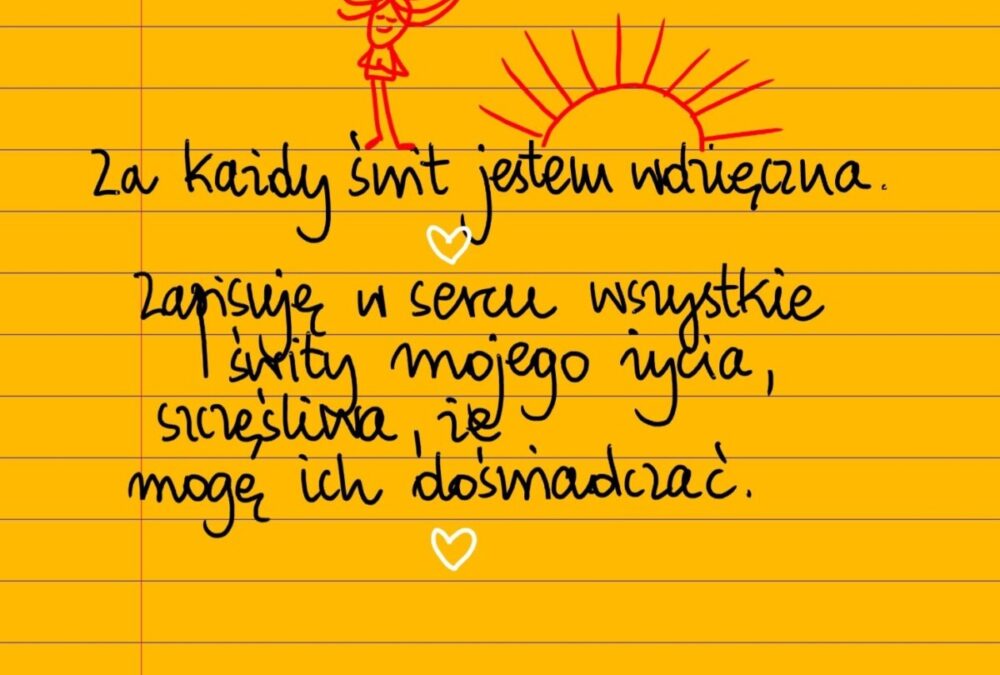 Za każdy świt jestem wdzięczna.
Zapisuję w sercu wszystkie
świty mojego życia,
szczęśliwa, że
mogę ich doświadczać.